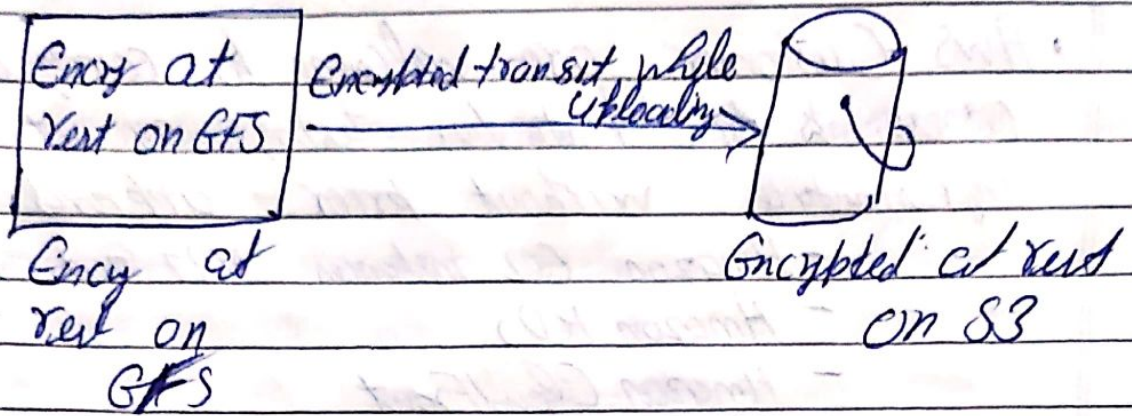 Ency at
rest on GFS
Encrypted transit, while
Uploading
Ency at
rest on
GFS
Encrypted at rest
on S3